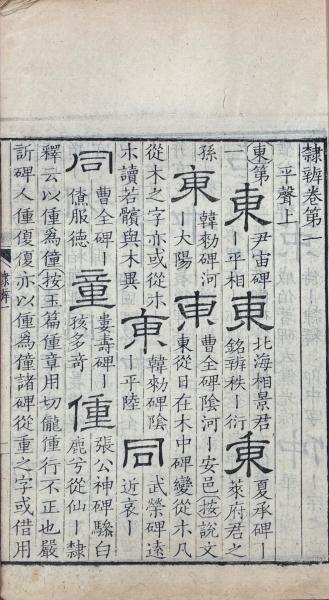 隸辨卷第一
平聲上
東第一
東 尹宙碑｜平相 東 北海相景君銘辨秩｜衍 東 夏承碑｜萊府君之孫
東 韓勑碑河｜大陽 東 曹全碑陰河｜安邑按說文東從日在木中碑變從木凡
從木之字亦或從木木讀若髕與木異 東 韓勑碑陰｜平陸 同 武榮碑遠近哀｜
同 曹全碑｜服德 童 婁壽碑｜孩多奇 僮 張公神碑驂白鹿兮從仙｜隸
釋云以僮為僮按玉篇僮章用切儱僮行不正也嚴
訢碑人僮復復亦以僮為僮諸碑從重之字或借用